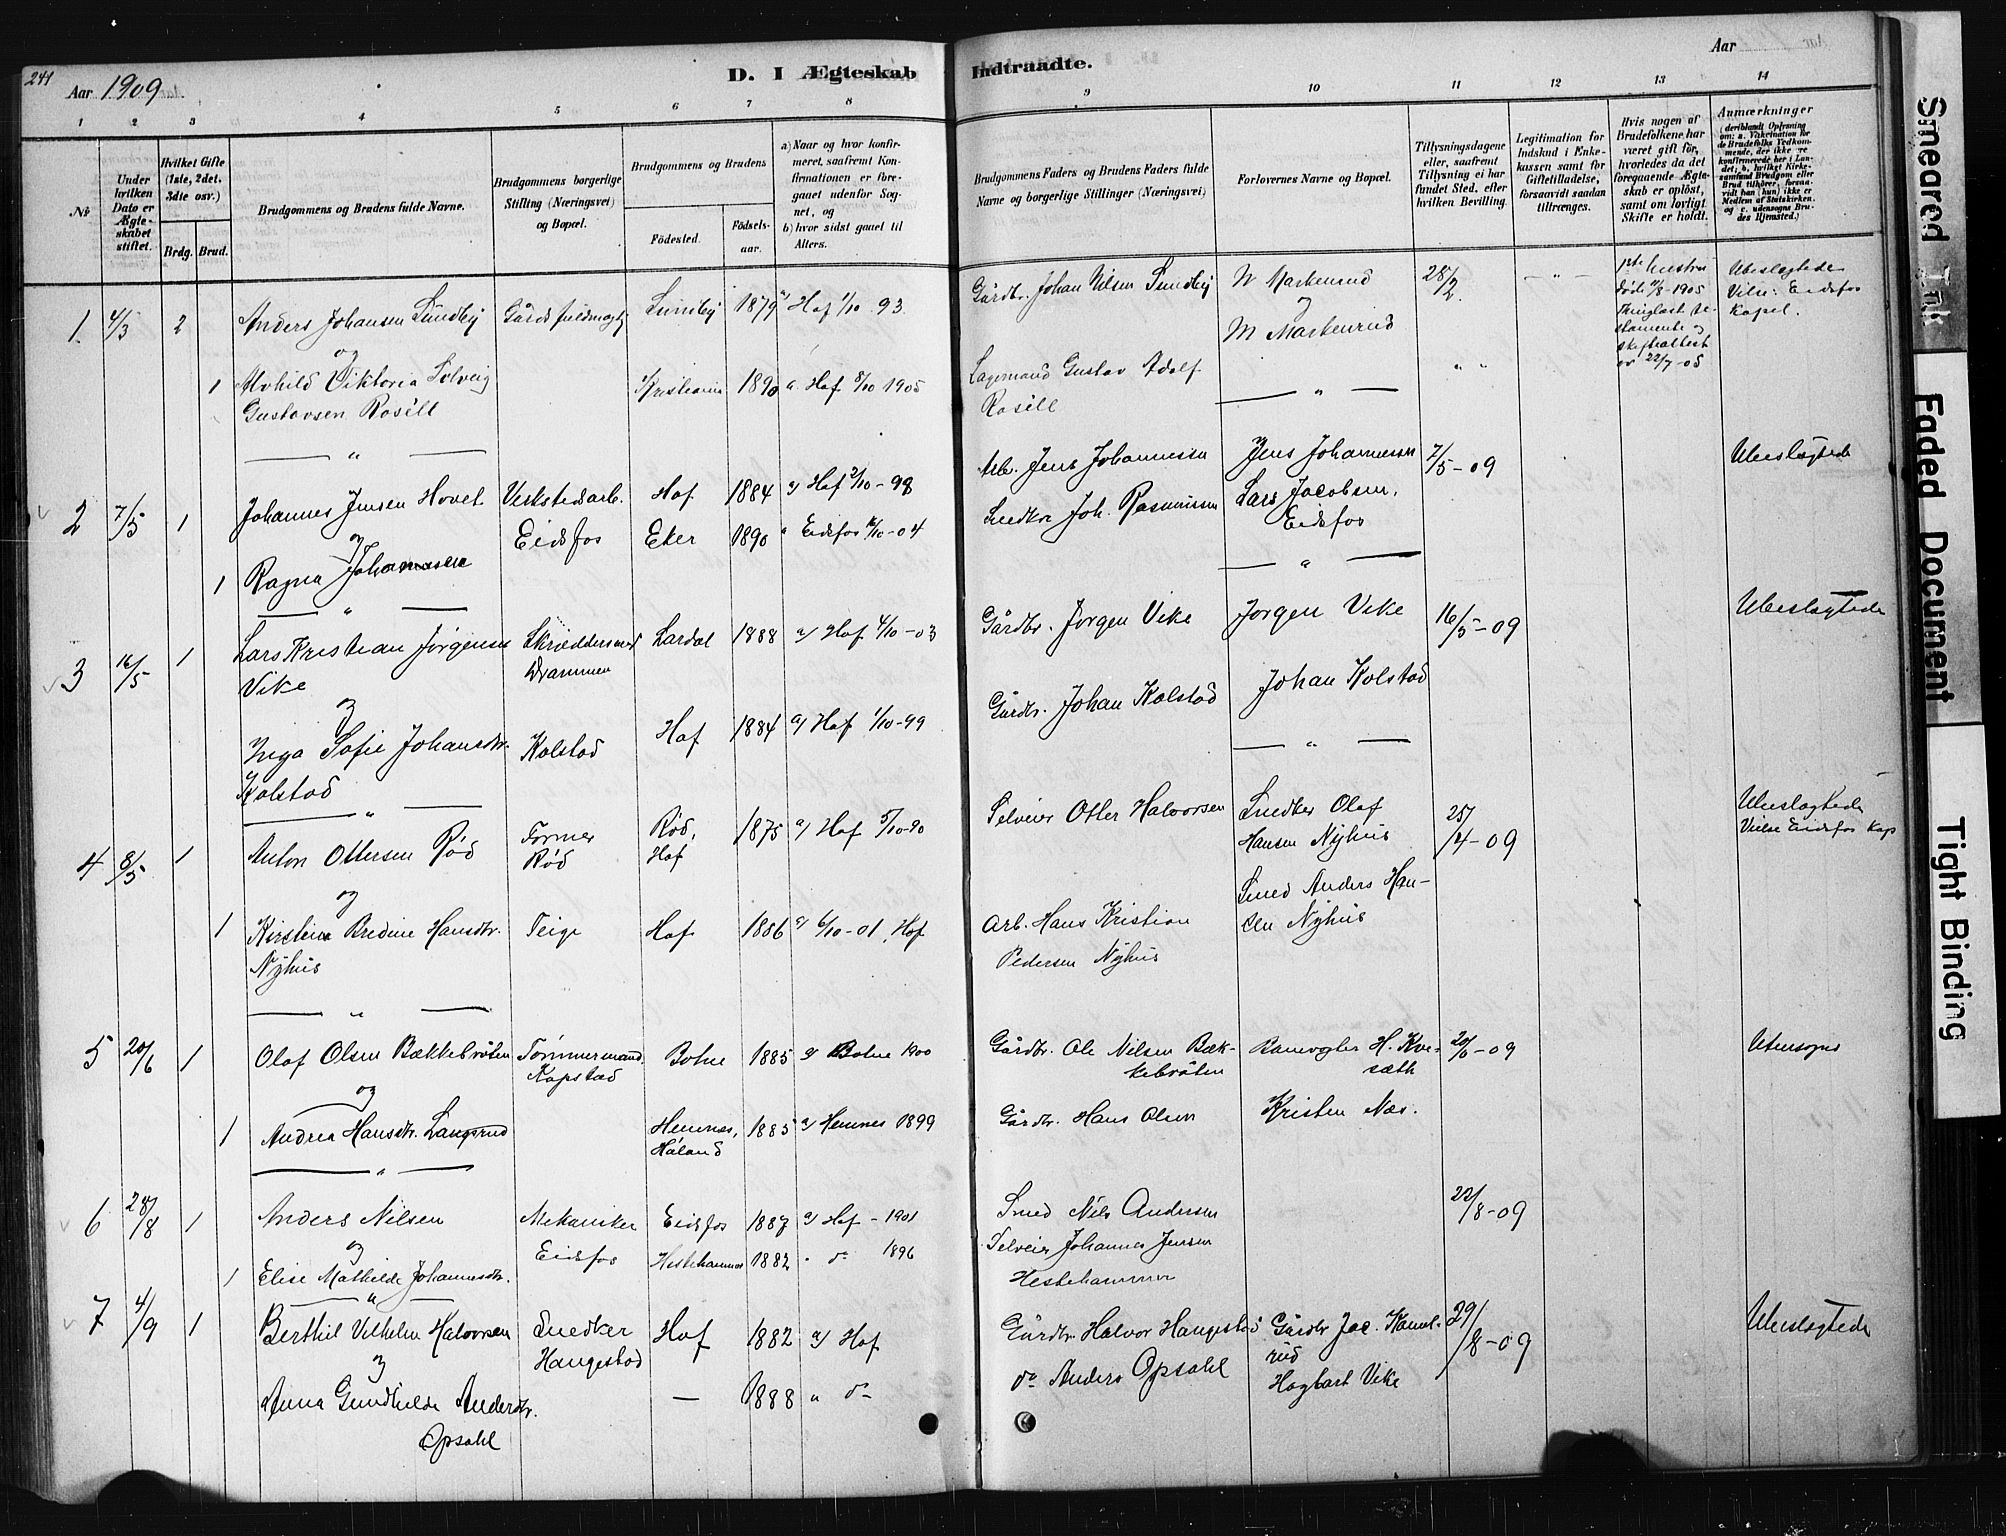 241
Aar 1909
D. I Ægteskab
Indtraadte.
Aar
1 2 3 4 5 6 7 8 9 10 11 12 13 14
No
Under hvilken Dato er Ægteskabet stiftet.
Hvilket Gifte (1ste, 2det, 3die osv.)
Brdg. Brud.
Brudgommens og Brudens fulde Navne.
Brudgommens borgerlige Stilling (Næringsvei) og Bopæl.
Brudgommens og Brudens
Födested.
Födselsaar.
a) Naar og hvor konfirmeret, saafremt Konfirmationen er foregaaet udenfor Sognet, og
b) hvor sidst gaaet til Alters.
Brudgommens Faders og Brudens Faders fulde Navne og borgerlige Stillinger (Næringsvei)
Forlovernes Navne og Bopæl.
Tillysningsdagene eller, saafremt Tillysning ei har fundet Sted, efter hvilken Bevilling.
Legitimation for Indskud i Enkekassen samt for Giftetilladelse, forsaavidt saadan tiltrænges.
Hvis nogen af Brudefolkene har været gift för, hvorledes da det foregaaende Ægteskab er oplöst, samt om lovligt Skifte er holdt.
Anmærkninger
(deriblandt Oplysning om: a. Vakcination for de Brudefolks Vedkommende, der ikke ere konfirmerede her i Landet; b. hvilket Kirkesamfund Brudgom eller Brud tilhörer, forsaavidt han (hun) ikke er Medlem af Statskirken, og c. udensogns Brudes Hjemsted.)
1. 4/3 2 Anders Johansen Sundby Gårdsfuldmægtig Sundby 1879 a) Hof 1/10 93 Gårdbr. Johan Nilsen Sundby N Markerud 28/2 — " — 1ste hustru Ubeslægtede
og og død 11/8-1905 Vilse: Eidsfos
M Markerud Kapel.
skifteattest
av 22/7-05
1 Alvhild Viktoria Solveig Kristiania 1890 a Hof 8/10 1905 Lagermand Gustav Adolf " "
Gustavsen Roséll Rosèll — " —
— " —
2 7/5 1 Johannes Jensen Hovet Verkstedsarb. Hof 1884 a) Hof 2/10-98 Arb. Jens Johannessen Jens Johannessen 7/5-09 Ubeslægtede
og Eidsfos Eker 1890 " Eidsfos 16/10-04 Snedker Joh. Rasmussen Lars Jacobsen,
Eidsfos
1 Ragna Johannesen — " —
— " —
3 16/5 1 Lars Kristian Jørgensen Skræddersvend Lardal 1888 a) Hof 4/10-03 Gårdbr. Jørgen Vike Jørgen Vike 16/5-09 Ubeslægtede
Vike Drammen
og
Inga Sofie Johansdtr. Kolstad Hof 1884 a) Hof 1/10-99 Gårdbr. Johan Kolstad Johan Kolstad
Kolstad — " —
— " —
4 8/5 1 Anton Ottersen Rød Former Rød, 1875 a) Hof 5/10-90 Selveier Otter Halvorsen Snedker Olaf 25/4-09 Ubeslægtede
Rød Hof Hansen Nyhus Vielse Eidsfos Kap
og Smed Anders Han-
1 Kirstine Bredine Hansdtr. Teige Hof 1886 a) 6/10-01, Hof Arb. Hans Kristian sen Nyhus
Nyhus Pedersen Nyhus
— " —
5 20/6 1 Olaf Olsen Bækkebråten Tømmermand Botne 1885 a) Botne 1900 Gårdbr. Ole Nilsen Bæk- Banevogter H. Kve- 20/6-09 Utensogns
og Kopstad kebråten sæth
1 Andrea Hansdtr. Langsrud Hemnes, 1885 a) Hemnes 1899 Gårdbr. Hans Olsen Kristen Næs.
Høland
— " —
6 28/8 1 Anders Nilsen Mekaniker Eidsfos 1887 a) Hof - 1901 Smed Nils Andersen 22/8-09
og Eidsfos
1 Elise Mathilde Johannesdtr. Hestehammer 1882 " do 1896 Selveier Johannes Jensen
— " — Hestehammer
7 4/9 1 Berthil Vilhelm Halvorsen Snedker Hof 1882 a) Hof Gårdbr. Halvor Hangestad Gårdbr Jac. Kamel- 29/8-09 Ubeslægtede
og Hangestad rud
Anna Gundhilde Andersdtr. — 1888 " do do Anders Opsahl Hagbart Vike
Opsahl
Smeared Ink
Faded Document
Tight Binding